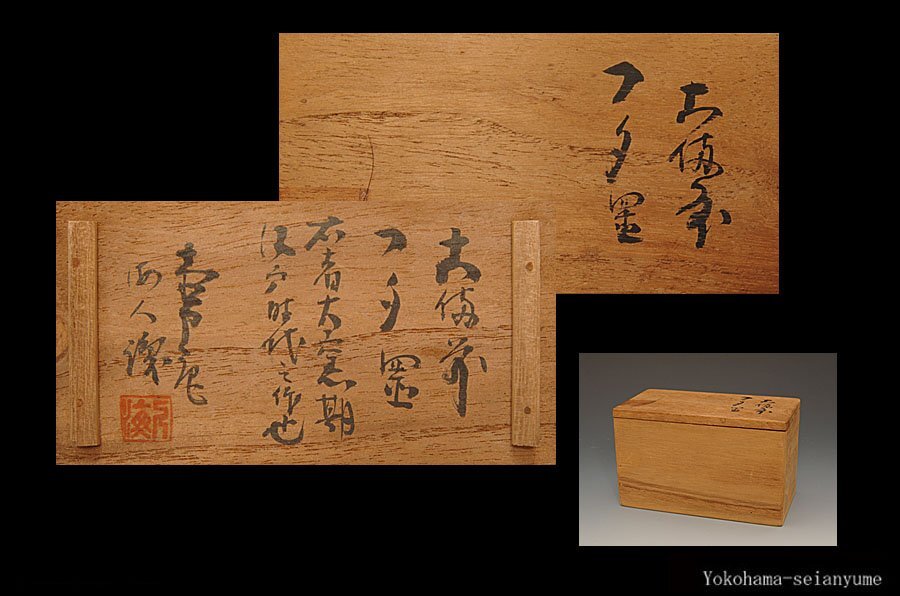 古備前
フタ置
古備前
フタ置
右者大窯期
江戸時代之作也
海人識
Yokohama-seianyume